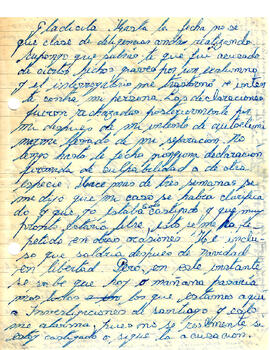 Gladicula Hasta la fecha no se
que clase de diligencias andan realizando
Supongo que sabrás que fui acusado
de ciertos hechos graves por un
y el interrogatorio me trastornó e inten
té contra mi persona. Las declaraciones
fueron rechazadas posteriormente por
mi despues de mi intento de
forzado de mi separacion. No
tengo hasta la fecha ninguna declaracion
firmada de culpabilidad o de otra
especie. Hace mas de tres semanas se
me dijo que mi caso se habia clarifica
do y que no estaba castigado y que muy
pronto estaria libre, esto se me ha re
petido en otras ocasiones. Me inclu
so que saldria despues de navidad
en libertad. Pero, en este instante
se sabe que hoy o mañana pasaria
mos todos los que estamos aqui
a Investigaciones de Santiago y esto
me alarma, pues no se realmente si
estoy castigado o sigue la acusacion.